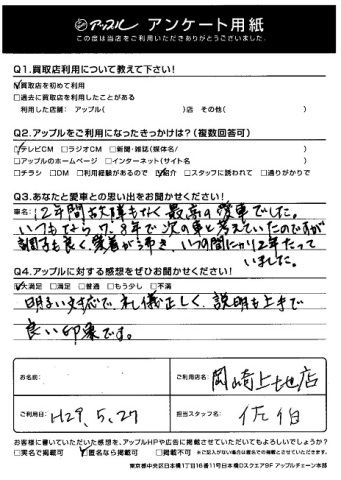 アップル アンケート用紙
この度は当店をご利用いただきありがとうございました。
Q1.買取店利用について教えて下さい!
☑買取店を初めて利用
□過去に買取店を利用したことがある
利用した店舗: アップル( )店 その他( )
Q2.アップルをご利用になったきっかけは?(複数回答可)
☑テレビCM □ラジオCM □新聞・雑誌(媒体名/ )
□アップルのホームページ □インターネット(サイト名 )
□チラシ □DM □利用経験があるので ☑紹介 □スタッフに誘われて □通りがかりで
Q3.あなたと愛車との思い出をお聞かせください!
車名: 12年間故障もなく最高の愛車でした。
いつもなら7、8年で次の車と考えていたのですが
調子も良く、愛着が沸き、いつの間にか12年たって
いました。
Q4.アップルに対する感想をぜひお聞かせください!
☑大満足 □満足 □普通 □もう少し □不満
明るい対応で、礼儀正しく、説明も上手で
良い印象です。
お名前:
ご利用店名: 岡崎上地店
ご利用日: H29.5.27
担当スタッフ名: 佐伯
お客様に書いていただいた感想を、アップルHPや広告に掲載させていただいてもよろしいでしょうか?
□実名で掲載可 ☑匿名なら掲載可 □不可 ※ご記入がない場合は匿名での掲載とさせていただきます。
東京都中央区日本橋1丁目16番11号日本橋Dスクエア9F アップルチェーン本部